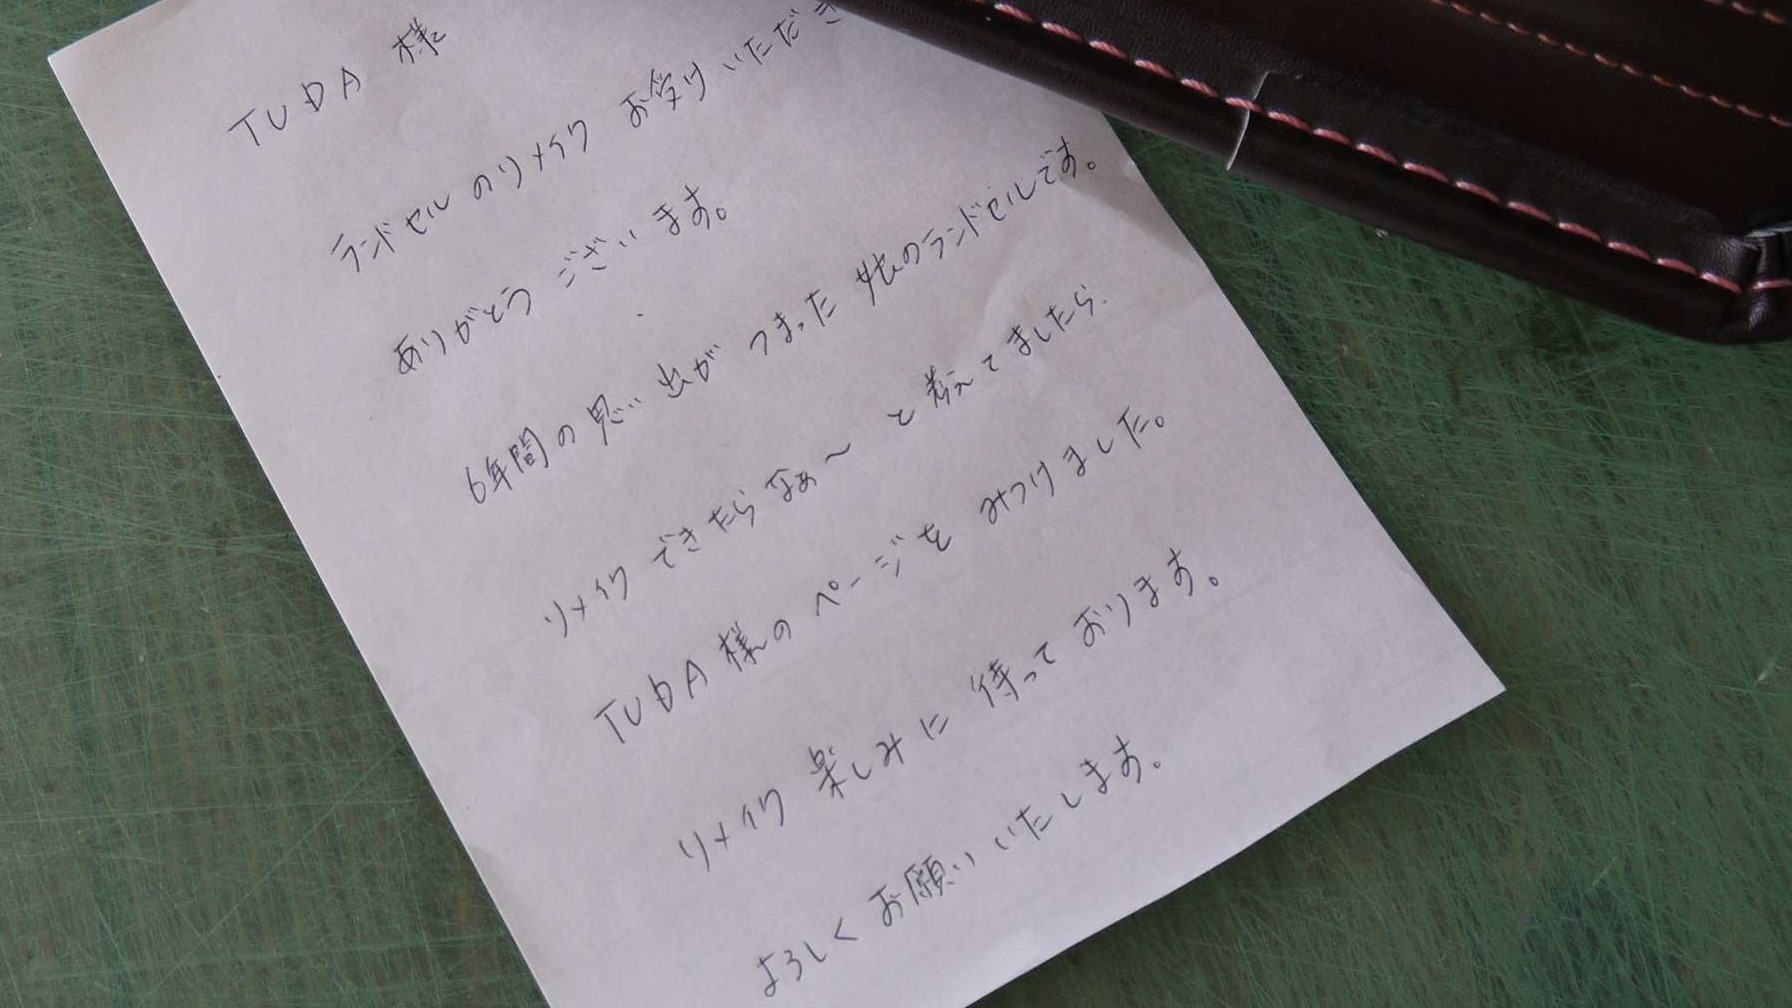 TUDA 様
ランドセルのリメイク お受けいただき
ありがとうございます。
6年間の思い出が つまった 娘のランドセルです。
リメイクできたらなぁ〜 と考えてましたら
TUDA様のページを みつけました。
リメイク楽しみに 待っております。
よろしくお願いいたします。